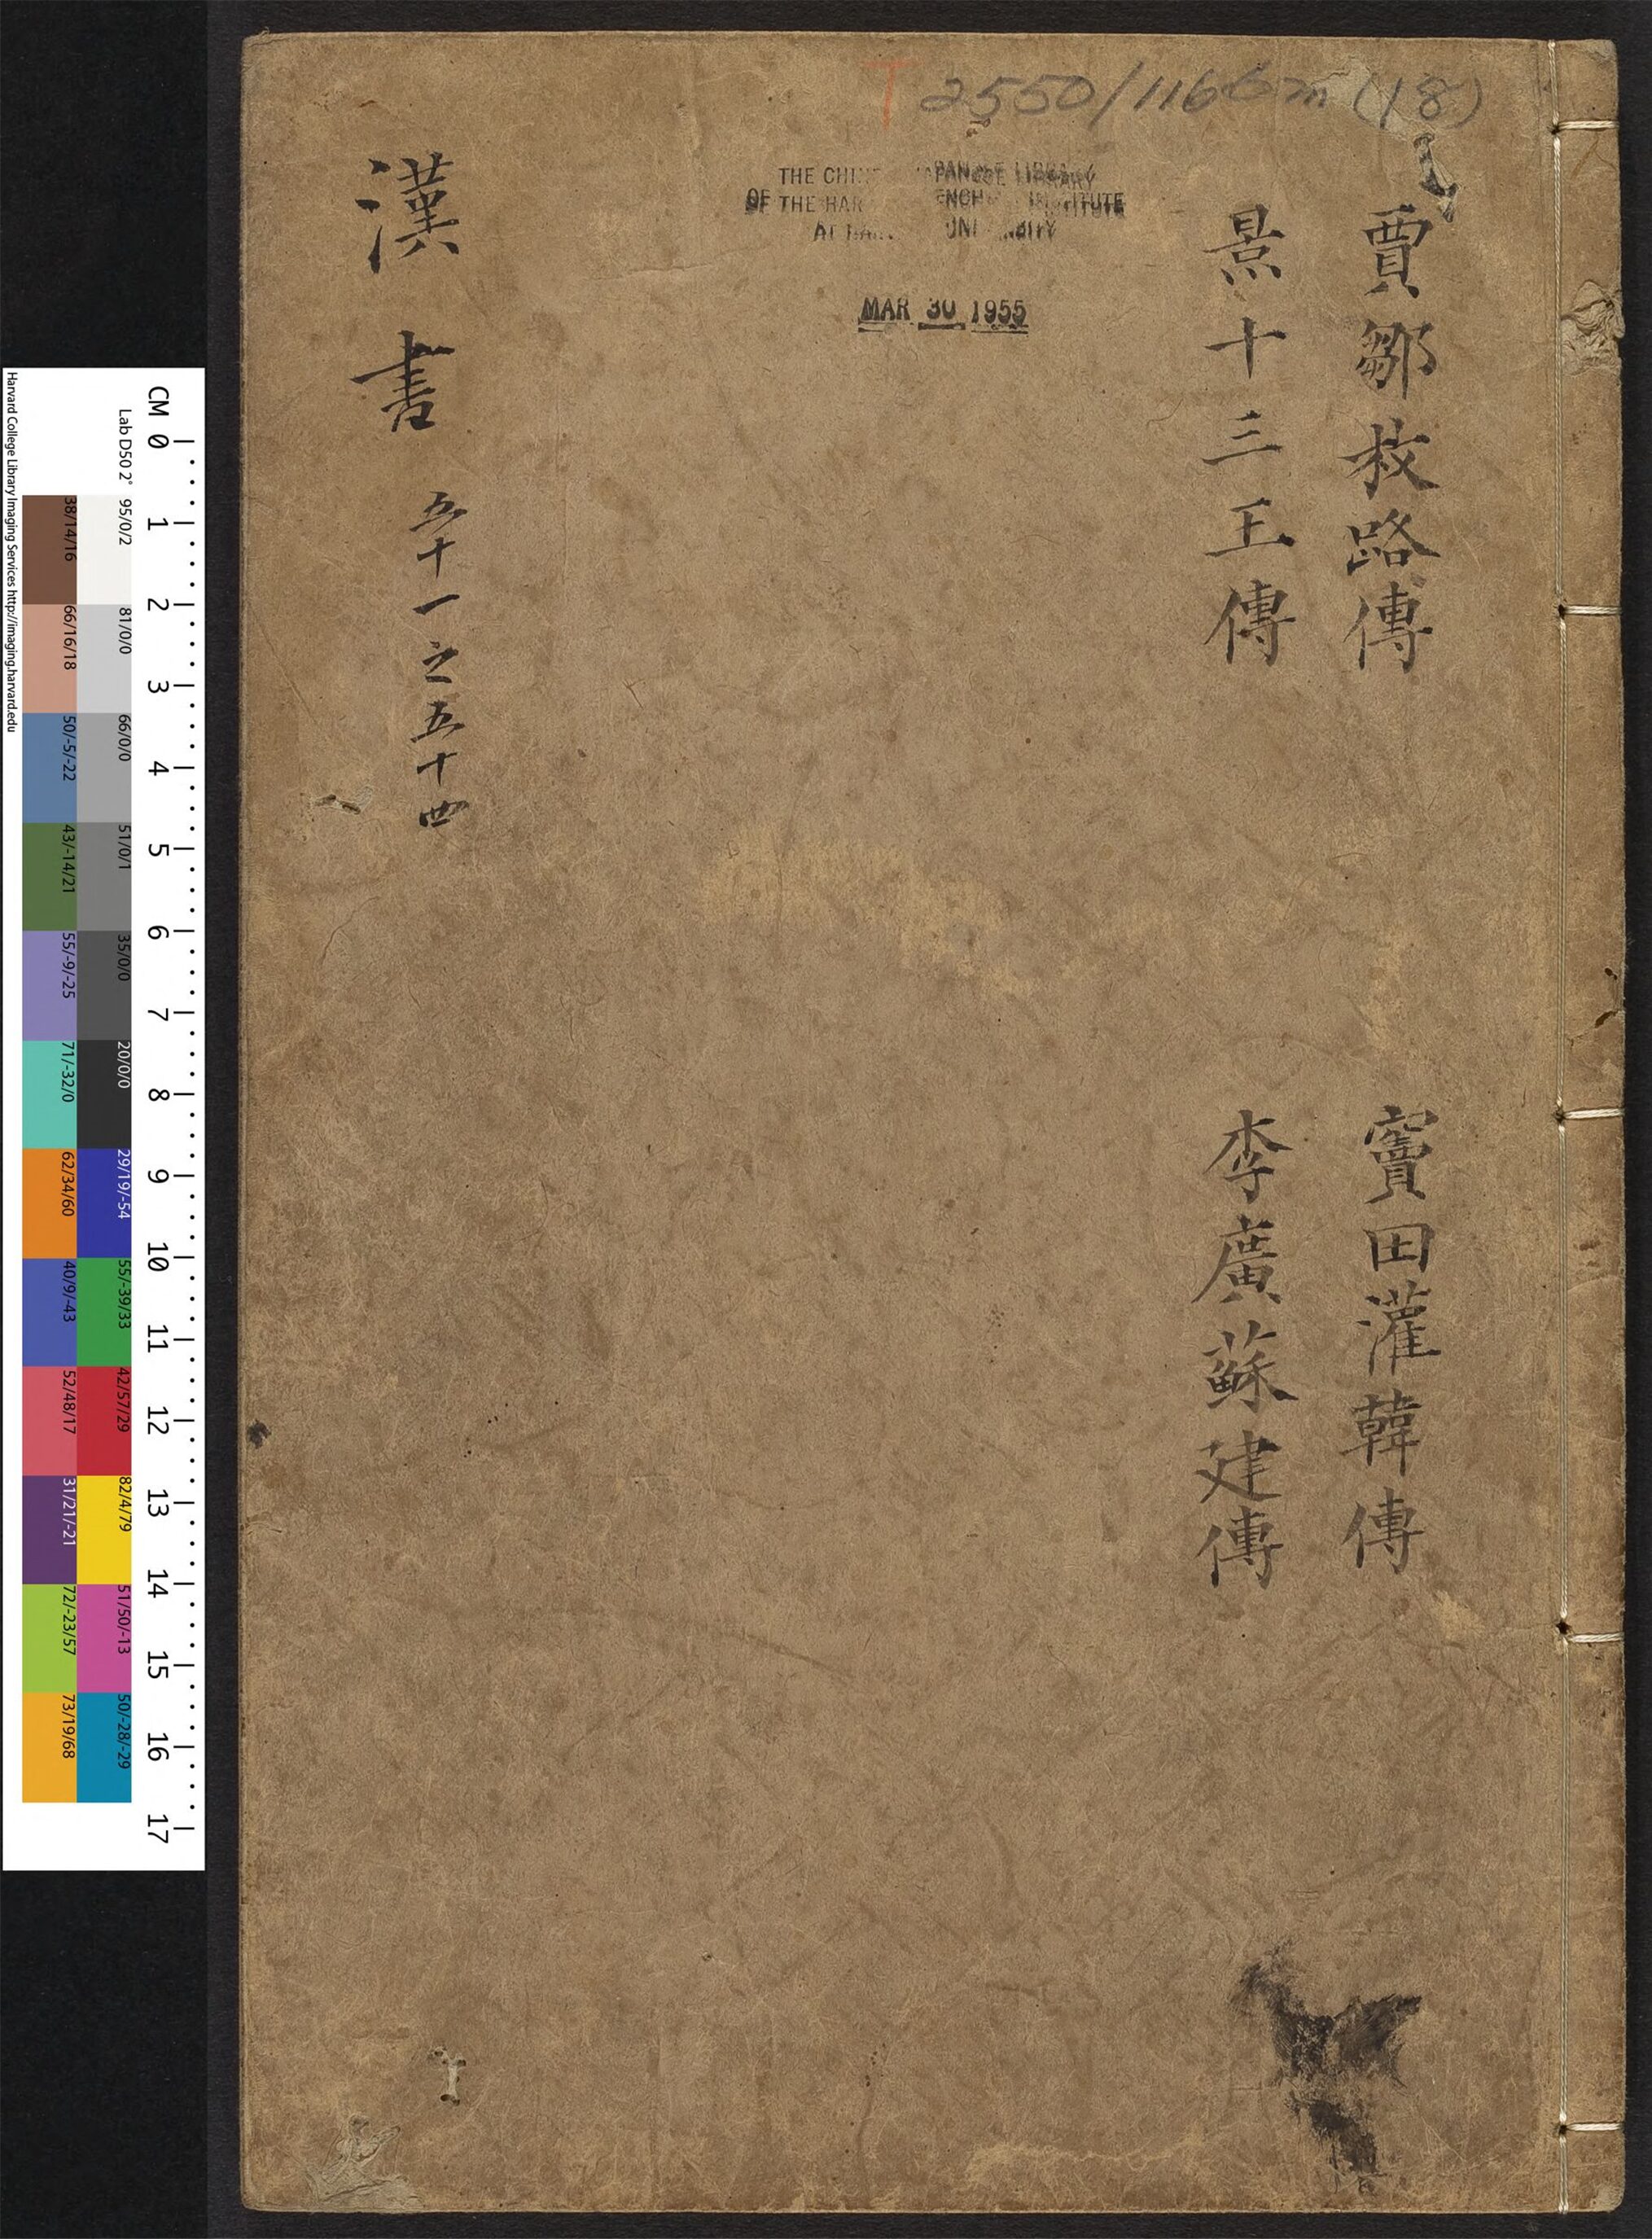 T 2550/1166m (18)
THE CHI
OF THE HAR
MAR 30 1955
賈鄒枚路傳
竇田灌韓傳
景十三王傳
李廣蘇建傳
漢書
五十一之五十四
CM 0 1 2 3 4 5 6 7 8 9 10 11 12 13 14 15 16 17
Lab D50 2° 95/0/2 81/0/0 66/0/0 51/0/1 35/0/0 20/0/0 29/19/-54 55/-39/33 42/57/29 82/4/79 51/50/-13 50/-28/-29
38/14/16 66/16/18 50/-5/-22 43/-14/21 55/-9/-25 71/-32/0 62/34/60 40/9/-43 52/48/17 31/21/-21 72/-23/57 73/19/68
Harvard College Library Imaging Services http://imaging.harvard.edu